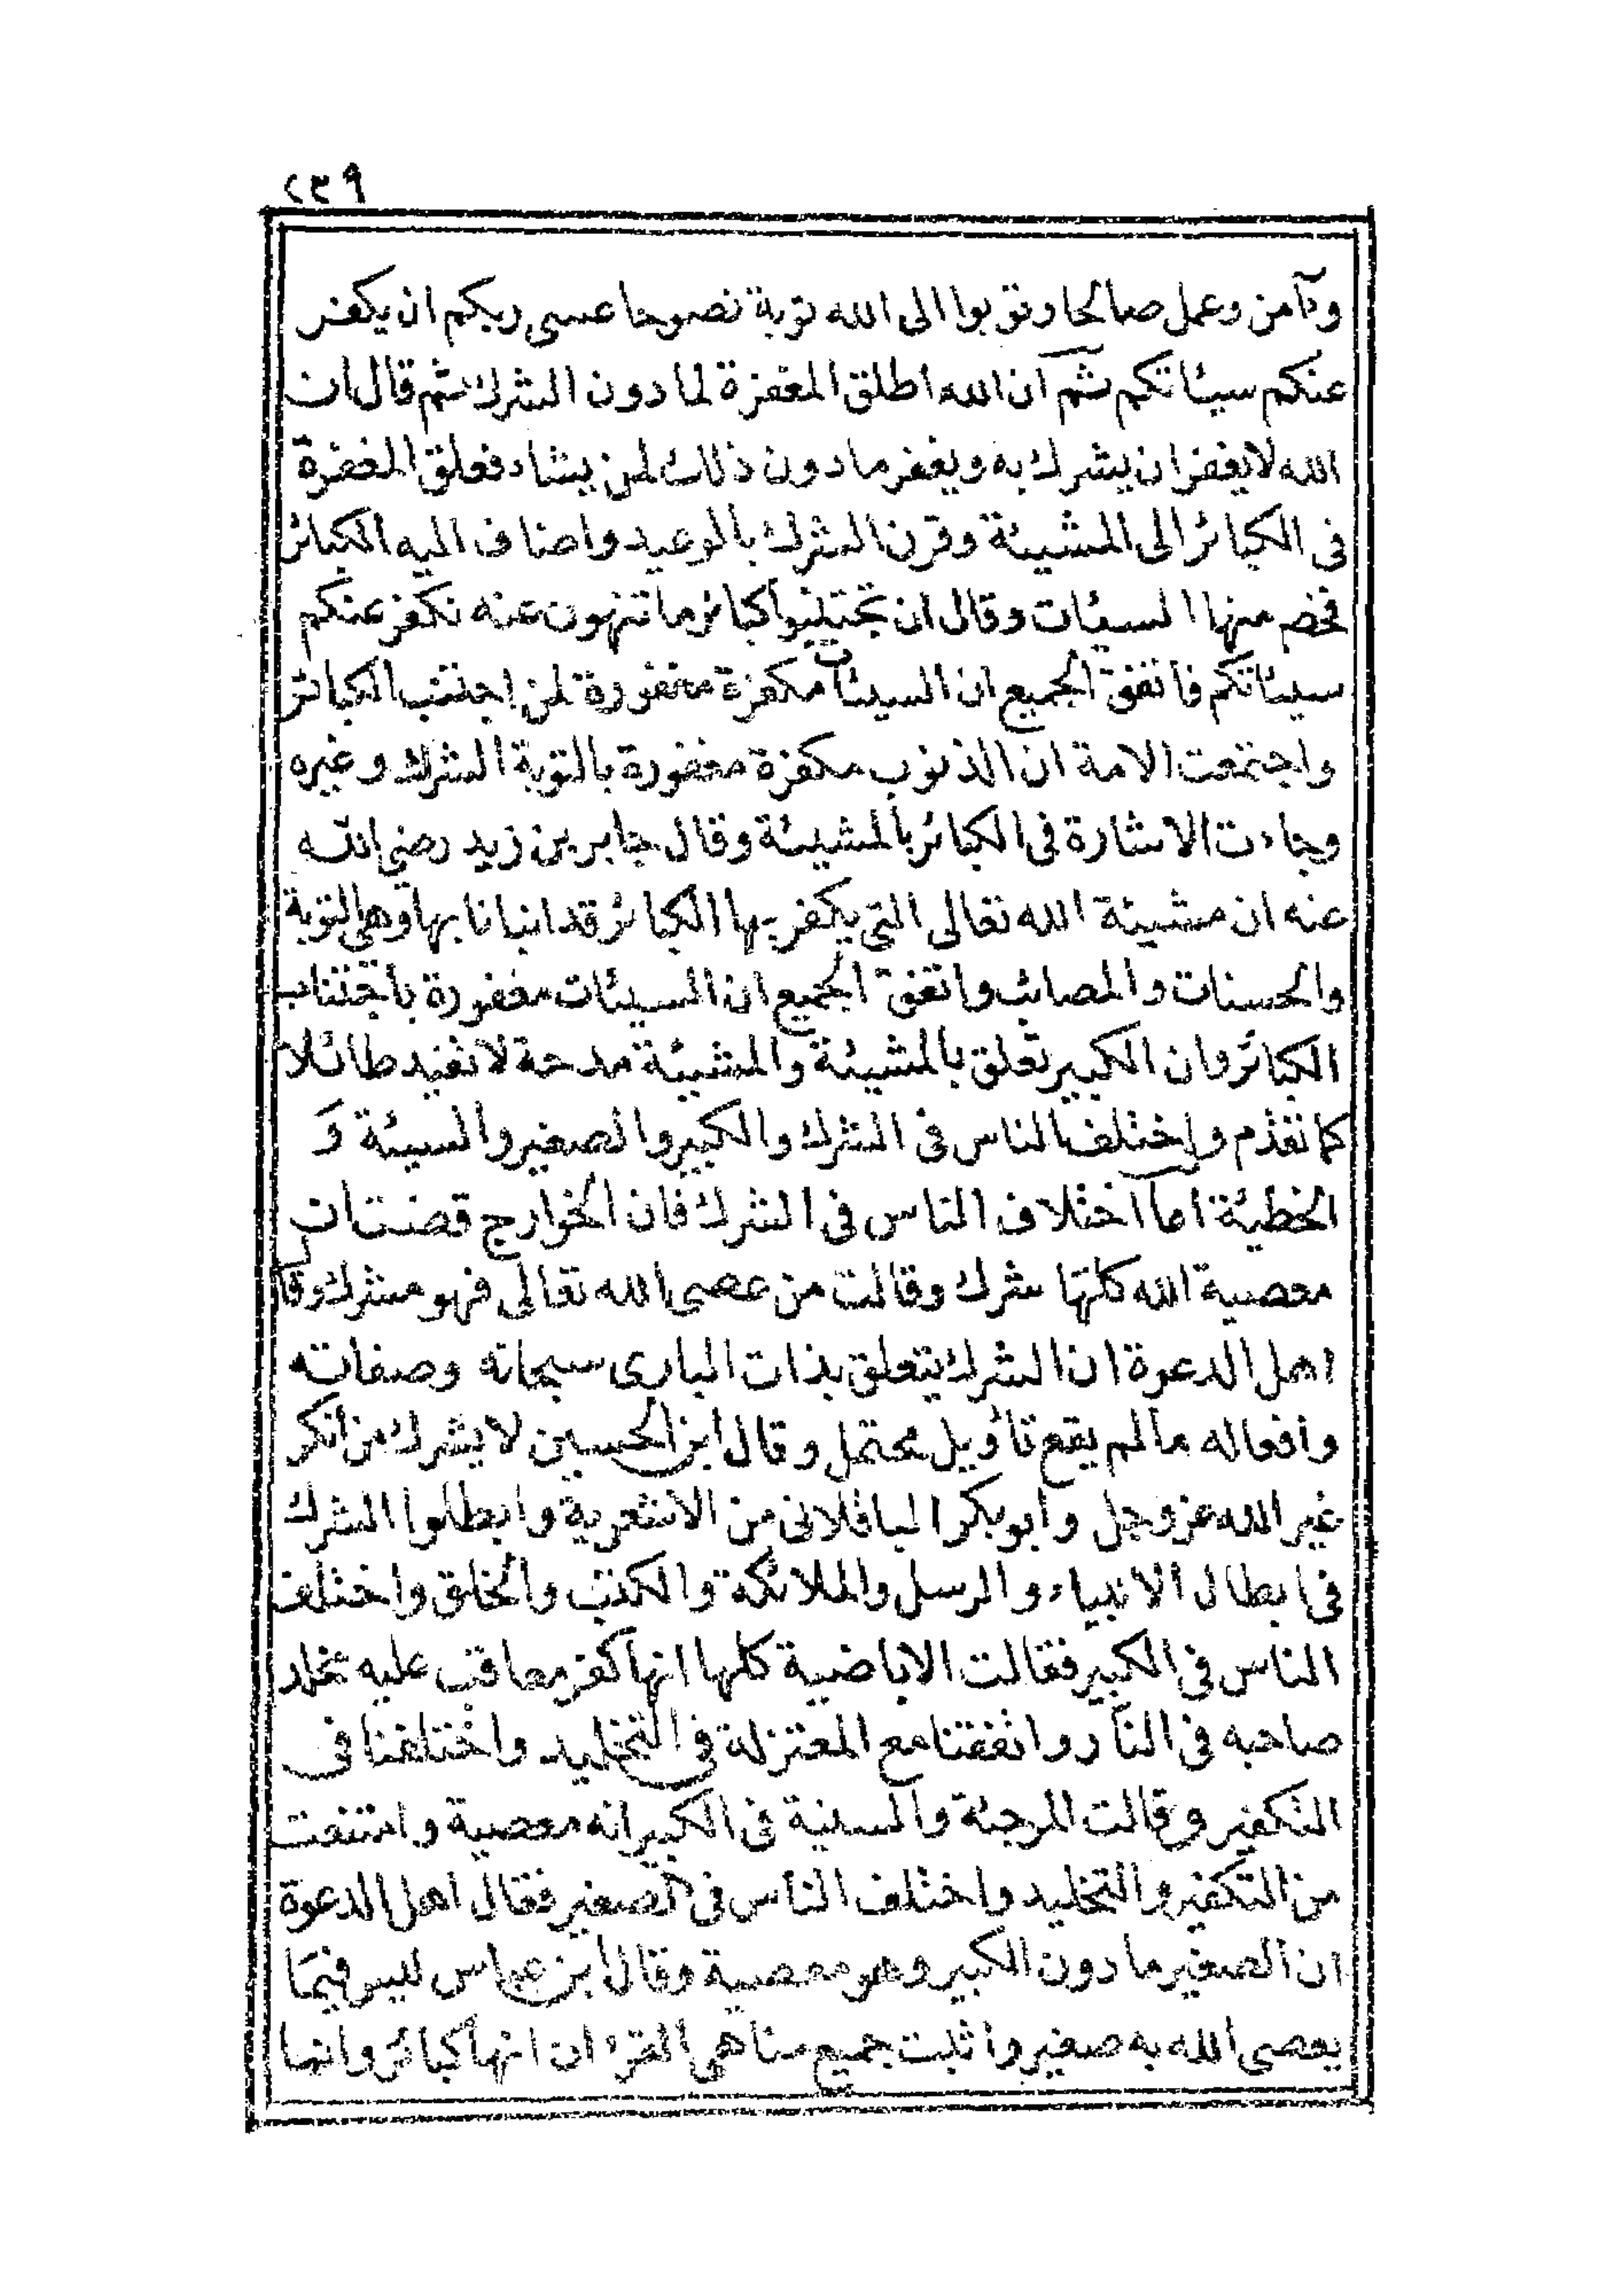 ٢٣٩
وآمن وعمل صالحا وتوبوا الى الله توبة نصوحا عسى ربكم ان يكفر
عنكم سيئاتكم ثم ان الله اطلق المغفرة لما دون الشرك ثم قال ان
الله لا يغفر ان يشرك به ويغفر ما دون ذلك لمن يشاء فعلق المغفرة
فى الكبائر الى المشيئة وقرن الشرك بالوعيد واضاف اليه الكبائر
فخص منها السيئات وقال ان تجتنبوا كبائر ما تنهون عنه نكفر عنكم
سيئاتكم فاتفق الجميع ان السيئات مكفرة مغفورة لمن اجتنب الكبائر
واجتمعت الامة ان الذنوب مكفرة مغفورة بالتوبة الشرك وغيره
وجاءت الاشارة فى الكبائر بالمشيئة وقال جابر بن زيد رضى الله
عنه ان مشيئة الله تعالى التى يكفر بها الكبائر قد انبانا بها وهى التوبة
والحسنات والمصائب واتفق الجميع ان السيئات مغفورة باجتناب
الكبائر وان الكبير تعلق بالمشيئة والمشيئة مدحة لا تفيد طائلا
كما تقدم واختلف الناس فى الشرك والكبير والصغير والسيئة و
الخطيئة اما اختلاف الناس فى الشرك فان الخوارج قضت ان
معصية الله كلها شرك وقالت من عصى الله تعالى فهو مشرك وقال
اهل الدعوة ان الشرك يتعلق بذات البارى سبحانه وصفاته
وافعاله ما لم يقع تأويل محتمل وقال ابن الحسين لا يشرك من انكر
غير الله عز وجل وابو بكر الباقلانى من الاشعرية وابطلوا الشرك
فى ابطال الانبياء والرسل والملائكة والكتب والخلق واختلف
الناس فى الكبير فقالت الاباضية كلها انها كفر معاقب عليه مخلد
صاحبه فى النار واتفقنا مع المعتزلة فى التخليد واختلفنا فى
التكفير وقالت المرجئة والسنية فى الكبير انه معصية وامتنعت
من التكفير والتخليد واختلف الناس فى الصغير فقال اهل الدعوة
ان الصغير ما دون الكبير وهو معصية وقال ابن عباس ليس فيما
يعصى الله به صغير واثبت جميع مناهى القرءان انها كبائر وانها